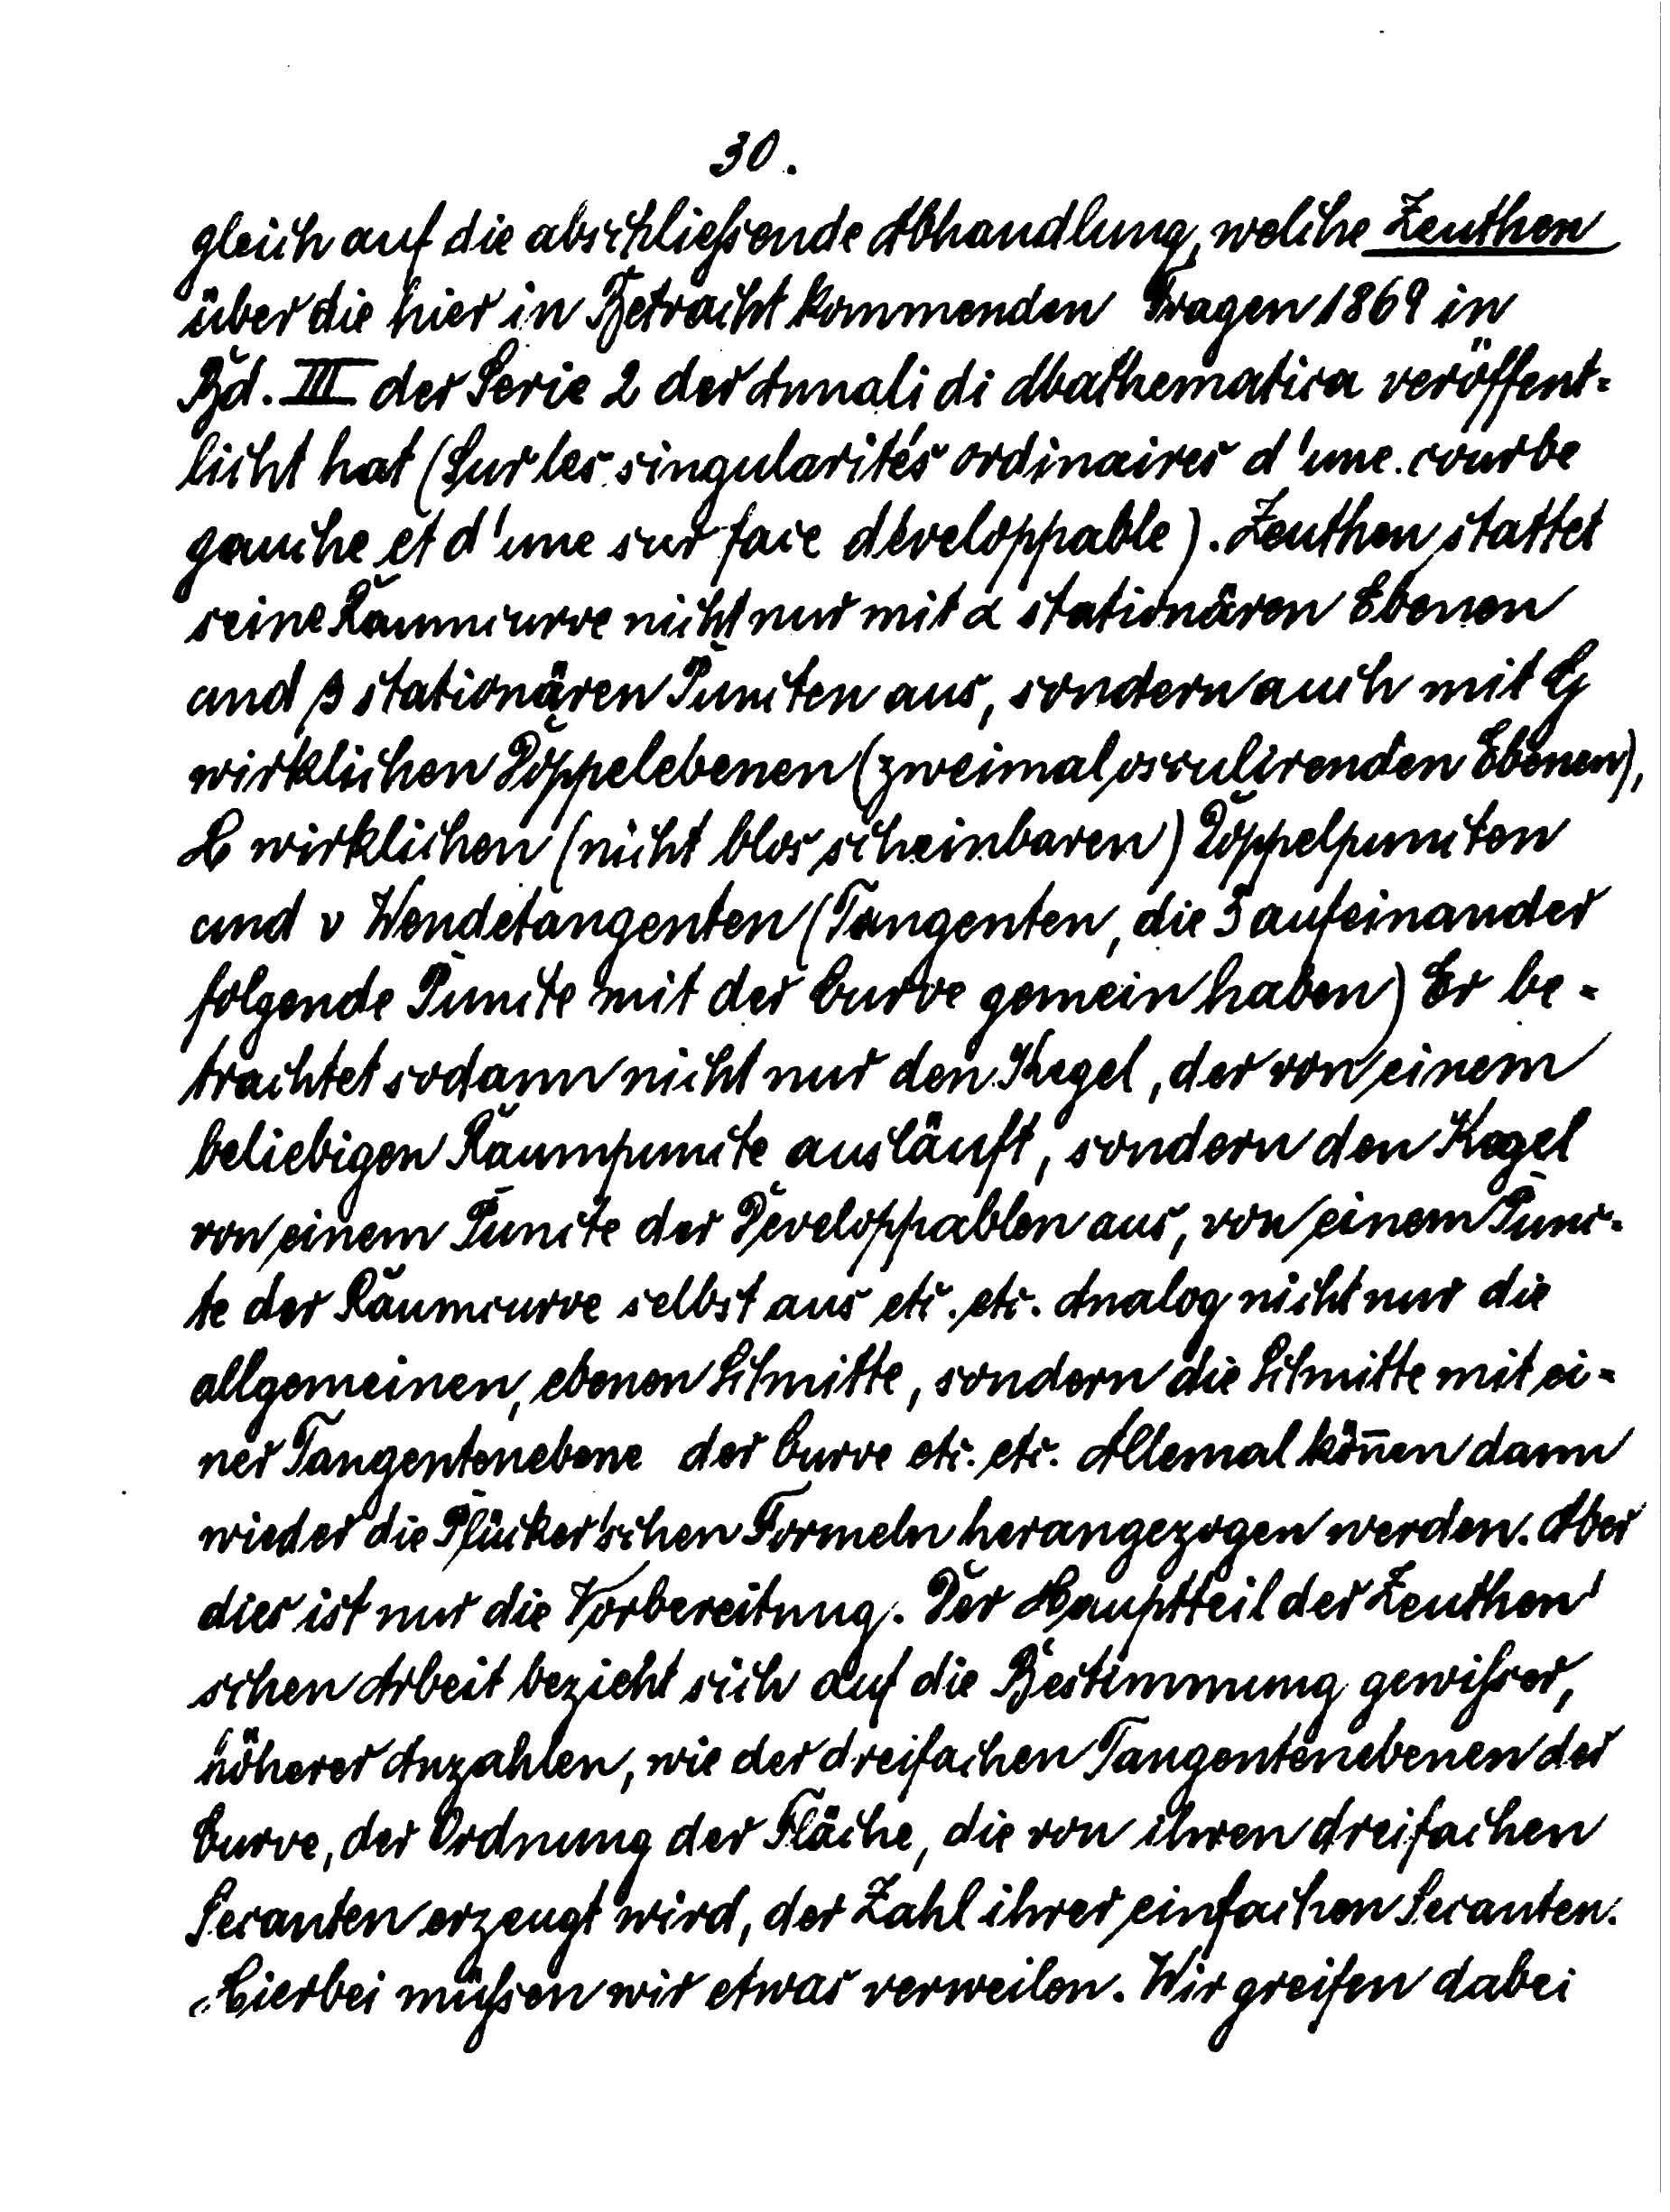 30.
gleich auf die abschließende Abhandlung, welche Zeuthen
über die hier in Betracht kommenden Fragen 1869 in
Bd. III der Serie 2 der Annali di Mathematica veröffent-
licht hat (Sur les singularités ordinaires d'une courbe
gauche et d'une surface développable). Zeuthen stattet
seine Raumcurve nicht nur mit α stationären Ebenen
und β stationären Puncten aus, sondern auch mit G
wirklichen Doppelebenen (zweimal osculirenden Ebenen),
H wirklichen (nicht blos scheinbaren) Doppelpuncten
und v Wendetangenten (Tangenten, die 3 aufeinander
folgende Puncte mit der Curve gemein haben) Er be-
trachtet sodann nicht nur den Kegel, der von einem
beliebigen Raumpuncte ausläuft, sondern den Kegel
von einem Puncte der Developpablen aus, von einem Punc-
te der Raumcurve selbst aus etc. etc. Analog nicht nur die
allgemeinen, ebenen Schnitte, sondern die Schnitte mit ei-
ner Tangentenebene der Curve etc. etc. Allemal kön̄en dann
wieder die Plücker'schen Formeln herangezogen werden. Aber
dies ist nur die Vorbereitung. Der Hauptteil der Zeuthen'
schen Arbeit bezieht sich auf die Bestimmung gewißer,
höherer Anzahlen, wie der dreifachen Tangentenebenen der
Curve, der Ordnung der Fläche, die von ihren dreifachen
Secanten erzeugt wird, der Zahl ihrer einfachen Secanten.
Hierbei müßen wir etwas verweilen. Wir greifen dabei